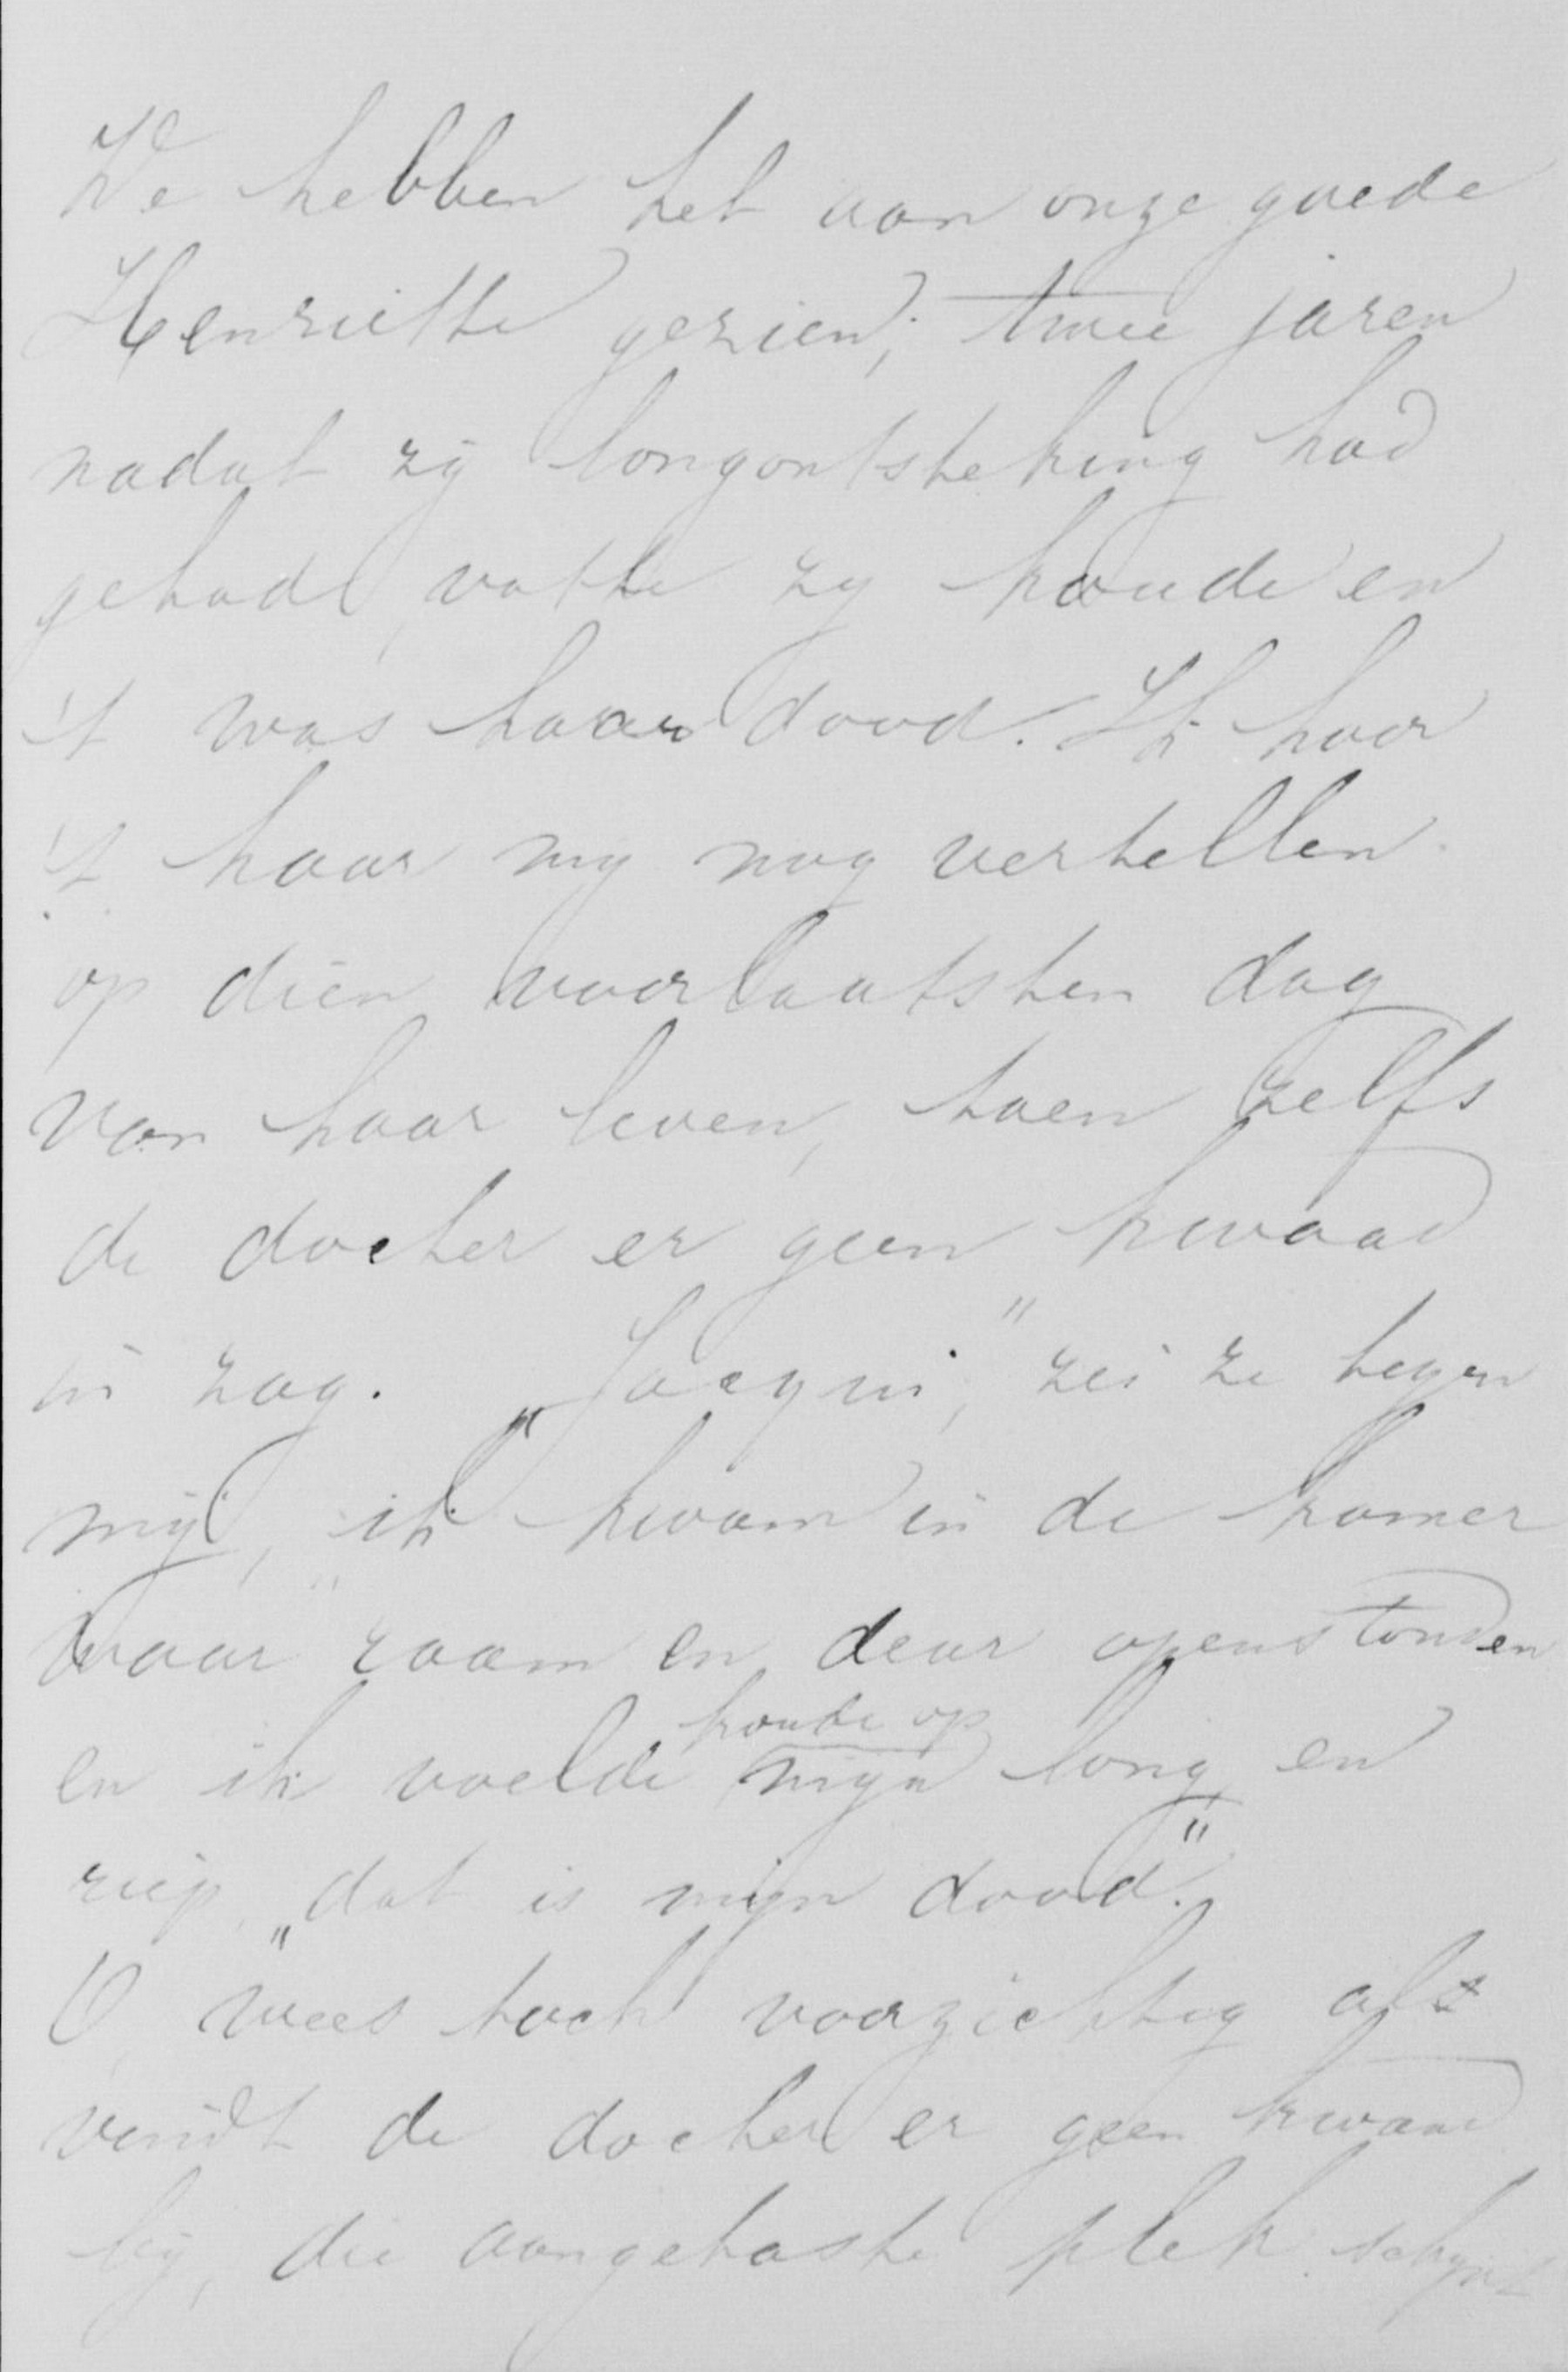 We hebben het aan onze goede
Henriette gezien; twee jaren
nadat zij longontsteking had
gehad, vatte zy koude en
't was haar dood. Ik hoor
't haar my nog vertellen
op dien voorlaatsten dag
van haar leven, toen zelfs
de docter er geen kwaad
in zag. „Jacqui," zei ze tegen
mij, „ik kwam in de kamer
waar raam en deur openstonden
en ik voelde koude op mijn long en
riep, „dat is mijn dood."
O, wees toch voorzichtig als
vindt de docter er geen kwaad
bij, die aangetaste plek schynt